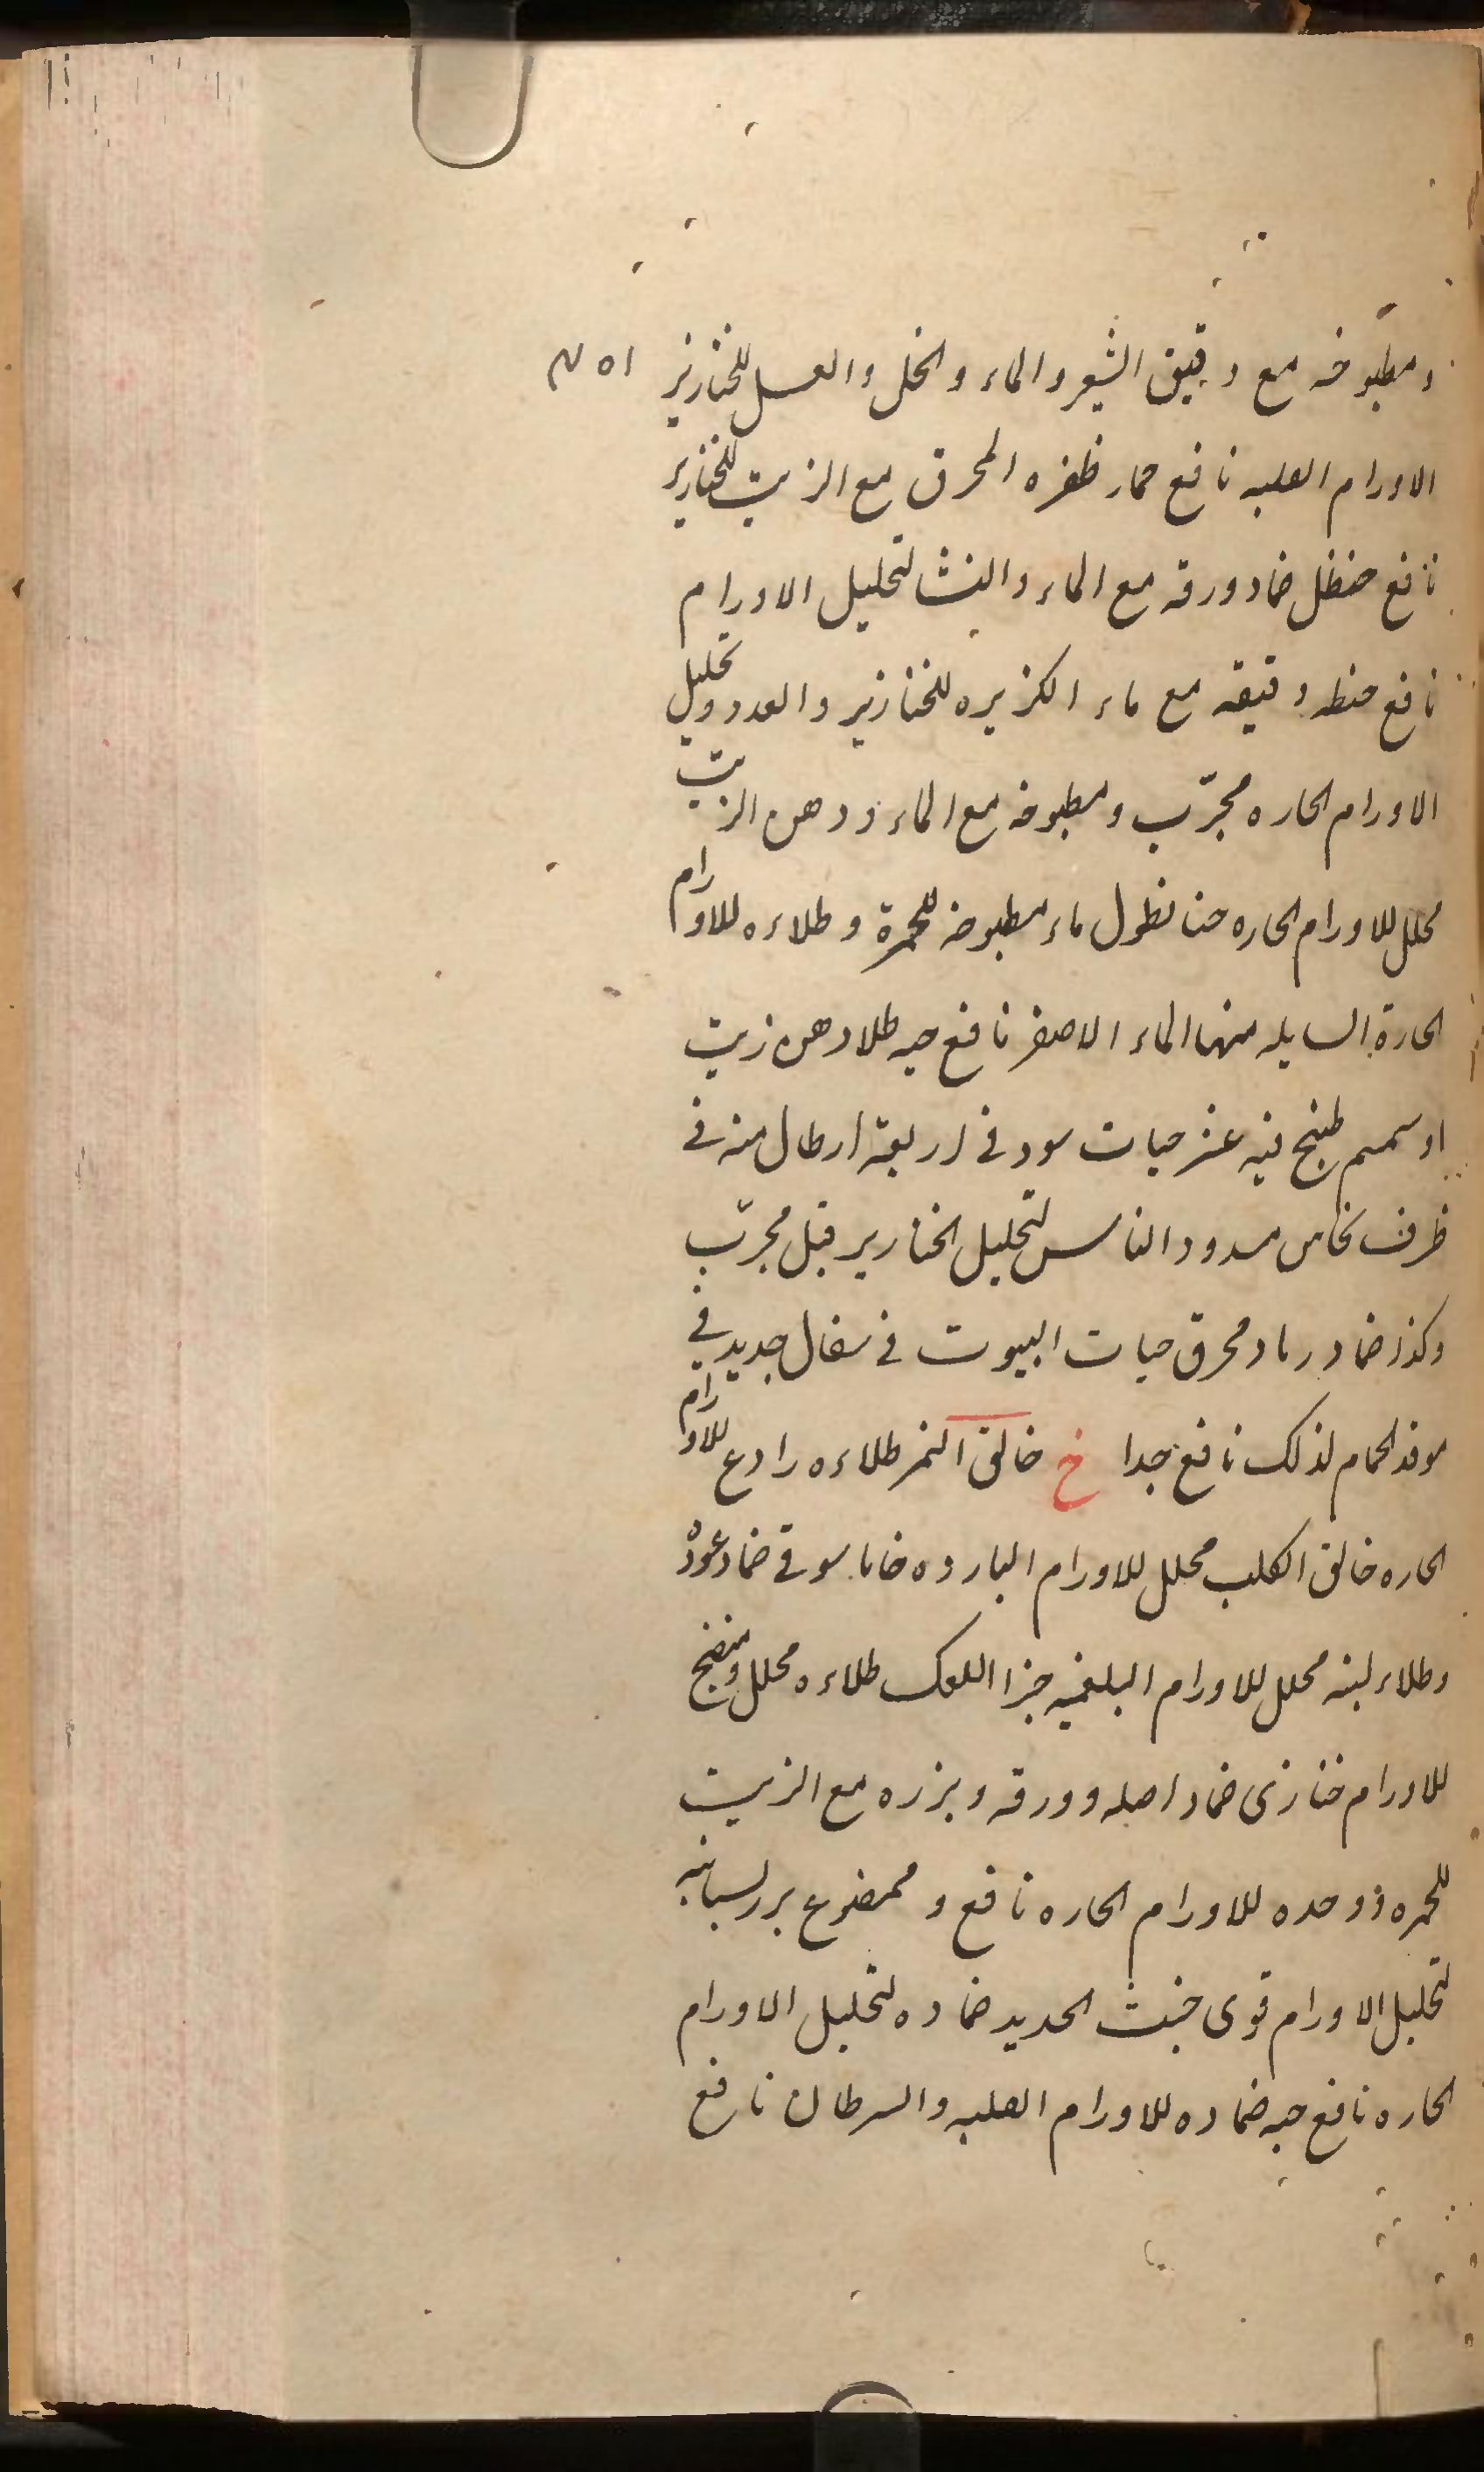 ومطبوخه مع دقيق الشعير والماء والخل والعسل للخنازير
الاورام الصلبه نافع حمار ظفره المحرق مع الزيت للخنازير
نافع حنظل ضماد ورقه مع الماء والنشا لتحليل الاورام
نافع حنطه دقيقه مع ماء الكزبره للخنازير والغدد وتحليل
الاورام الحاره مجرّب ومطبوخه مع الماء ودهن الزيت
محلل للاورام الحاره حنا نطول ماء مطبوخه للحمرة وطلاءه للاورام
الحارة السايله منها الماء الاصفر نافع حيه طلا دهن زيت
او سمسم طبخ فيه عشر حيات سود في اربعة ارطال منه في
ظرف نحاس مسدود الناس لتحليل الخنازير قبل مجرّب
وكذا ضماد رماد محرق حيات البيوت في سفال جديد في
موقد الحمام لذلك نافع جدا خ خانق النمر طلاءه رادع للاورام
الحاره خانق الكلب محلل للاورام البارده خاماسوقي ضماد عوده
وطلاء لبنه محلل للاورام البلغميه خبز اللعك طلاءه محلل ومنضج
للاورام خبازى ضماد اصله وورقه وبزره مع الزيت
للحمره ووحده للاورام الحاره نافع وممضوغ بزر لسبانيه
لتحليل الاورام قوى خبث الحديد ضماده لتحليل الاورام
الحاره نافع حبه ضماده للاورام الصلبه والسرطان نافع